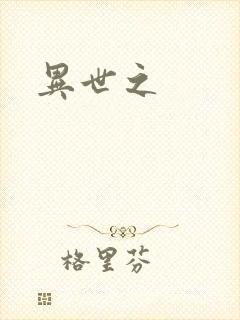 異世之
格里芬